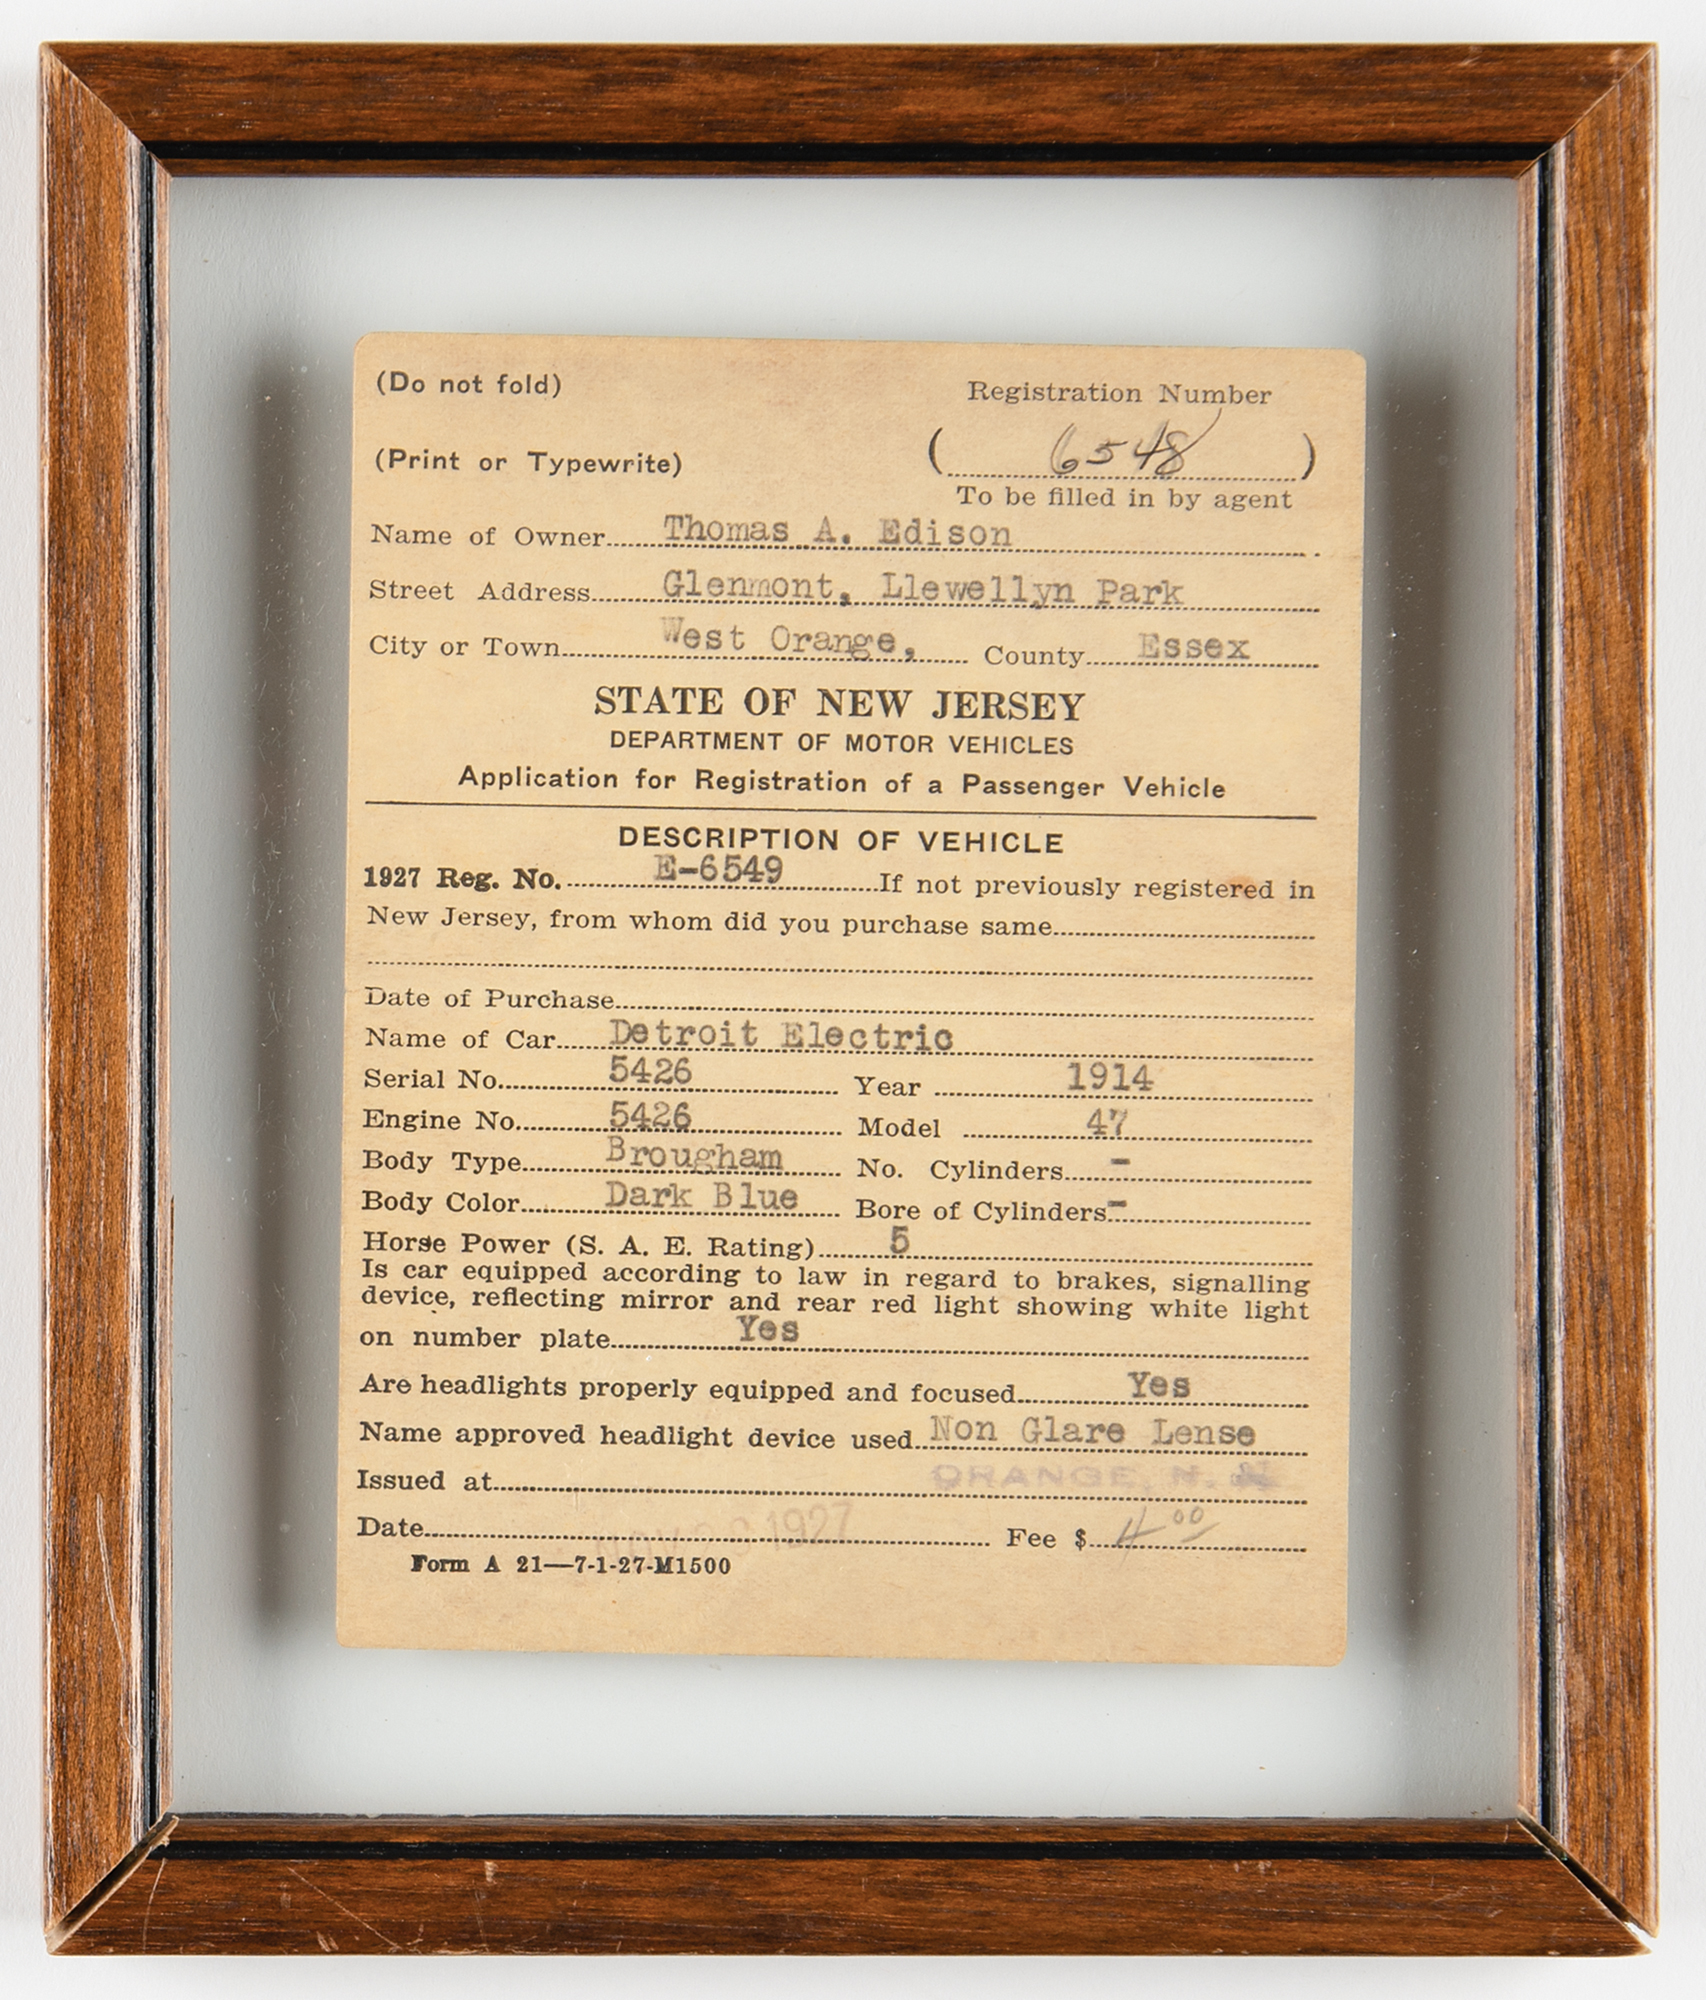 (Do not fold)
Registration Number
(Print or Typewrite)
( 6548 )
To be filled in by agent
Name of Owner Thomas A. Edison
Street Address Glenmont, Llewellyn Park
City or Town West Orange, County Essex
STATE OF NEW JERSEY
DEPARTMENT OF MOTOR VEHICLES
Application for Registration of a Passenger Vehicle
DESCRIPTION OF VEHICLE
1927 Reg. No. E-6549 If not previously registered in
New Jersey, from whom did you purchase same
Date of Purchase
Name of Car Detroit Electric
Serial No. 5426 Year 1914
Engine No. 5426 Model 47
Body Type Brougham No. Cylinders -
Body Color Dark Blue Bore of Cylinders -
Horse Power (S. A. E. Rating) 5
Is car equipped according to law in regard to brakes, signalling
device, reflecting mirror and rear red light showing white light
on number plate Yes
Are headlights properly equipped and focused Yes
Name approved headlight device used Non Glare Lense
Issued at ORANGE, N.
Date 1927 Fee $ 4 00
Form A 21—7-1-27-M1500